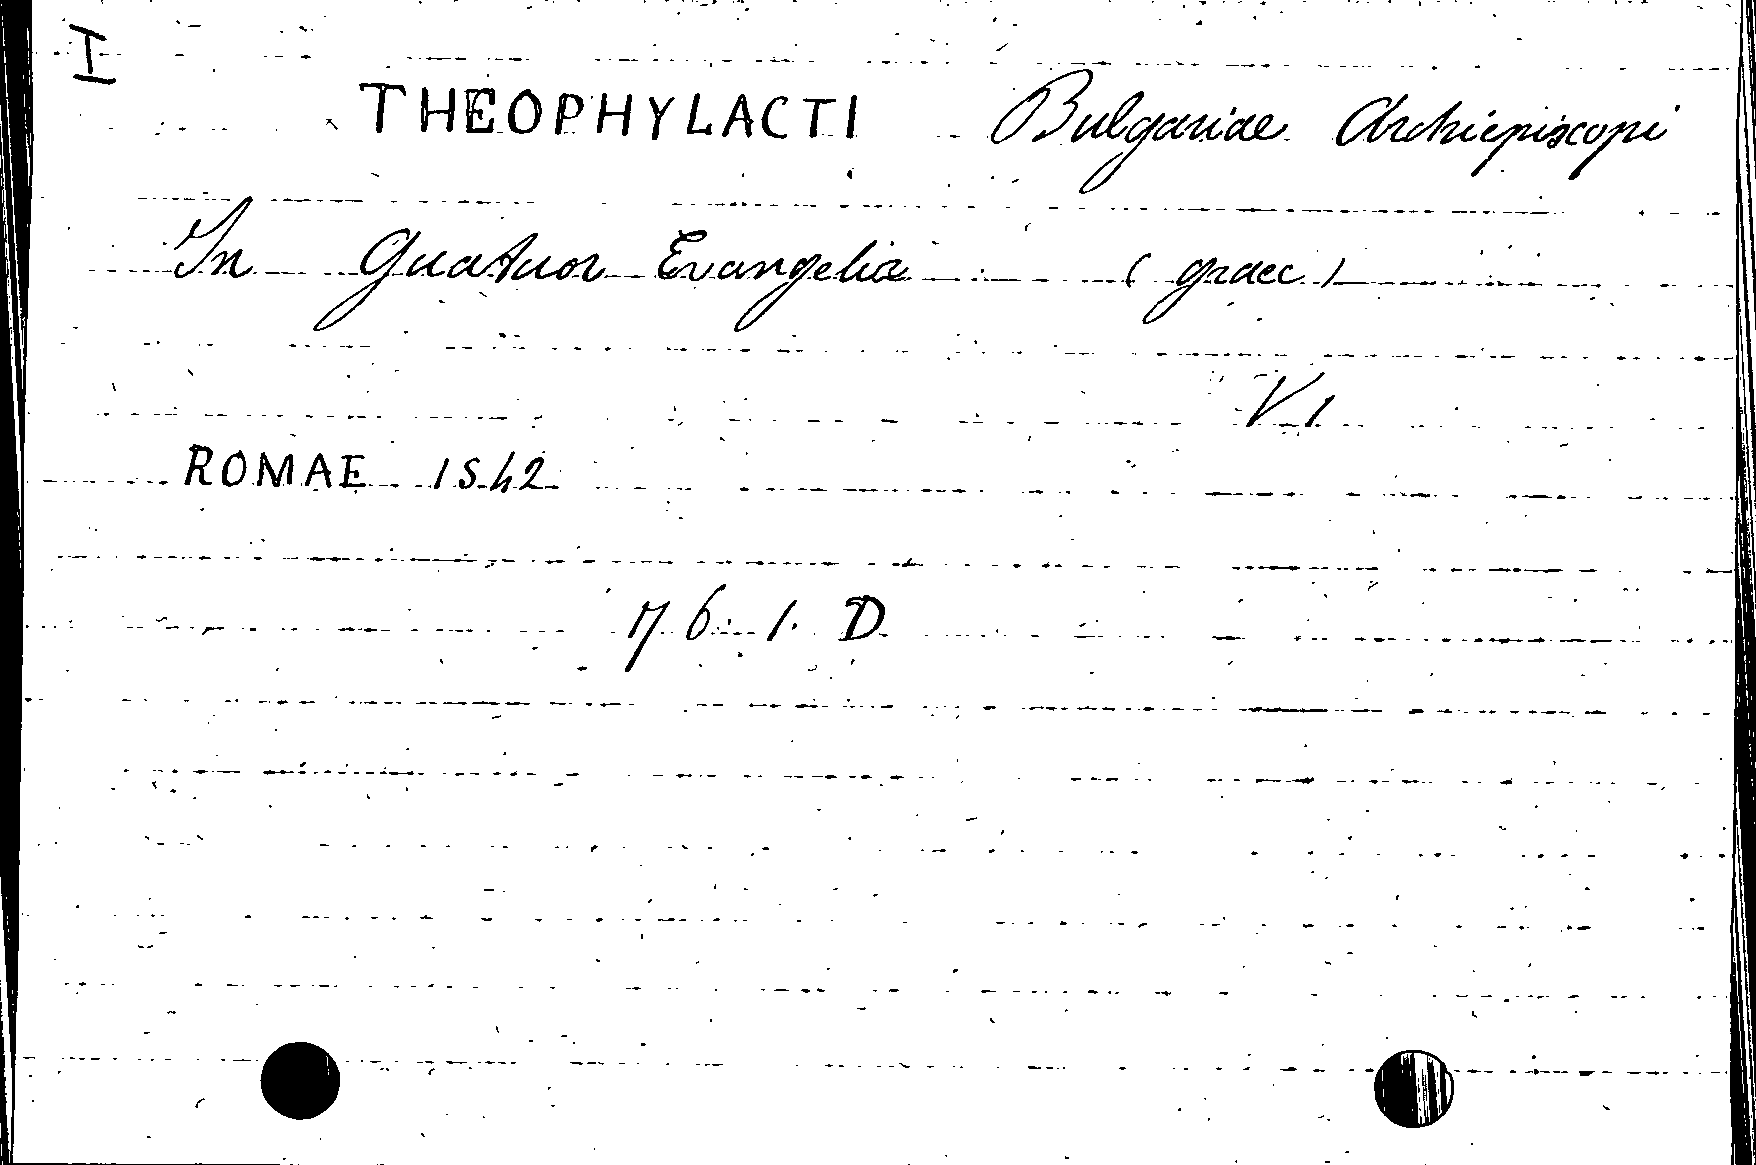 I
THEOPHYLACTI Bulgariae Archiepiscopi
In Quatuor Evangelia (graec)
V 1
ROMAE 1542
76. 1. D